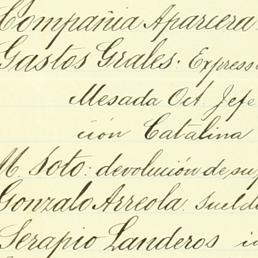 Compañia Aparcera.
Gastos Grales. Express
Mesada Oct. Jefe
ción Catalina
M. Soto: devolución de su
Gonzalo Arreola. Sueld
Serapio Landeros